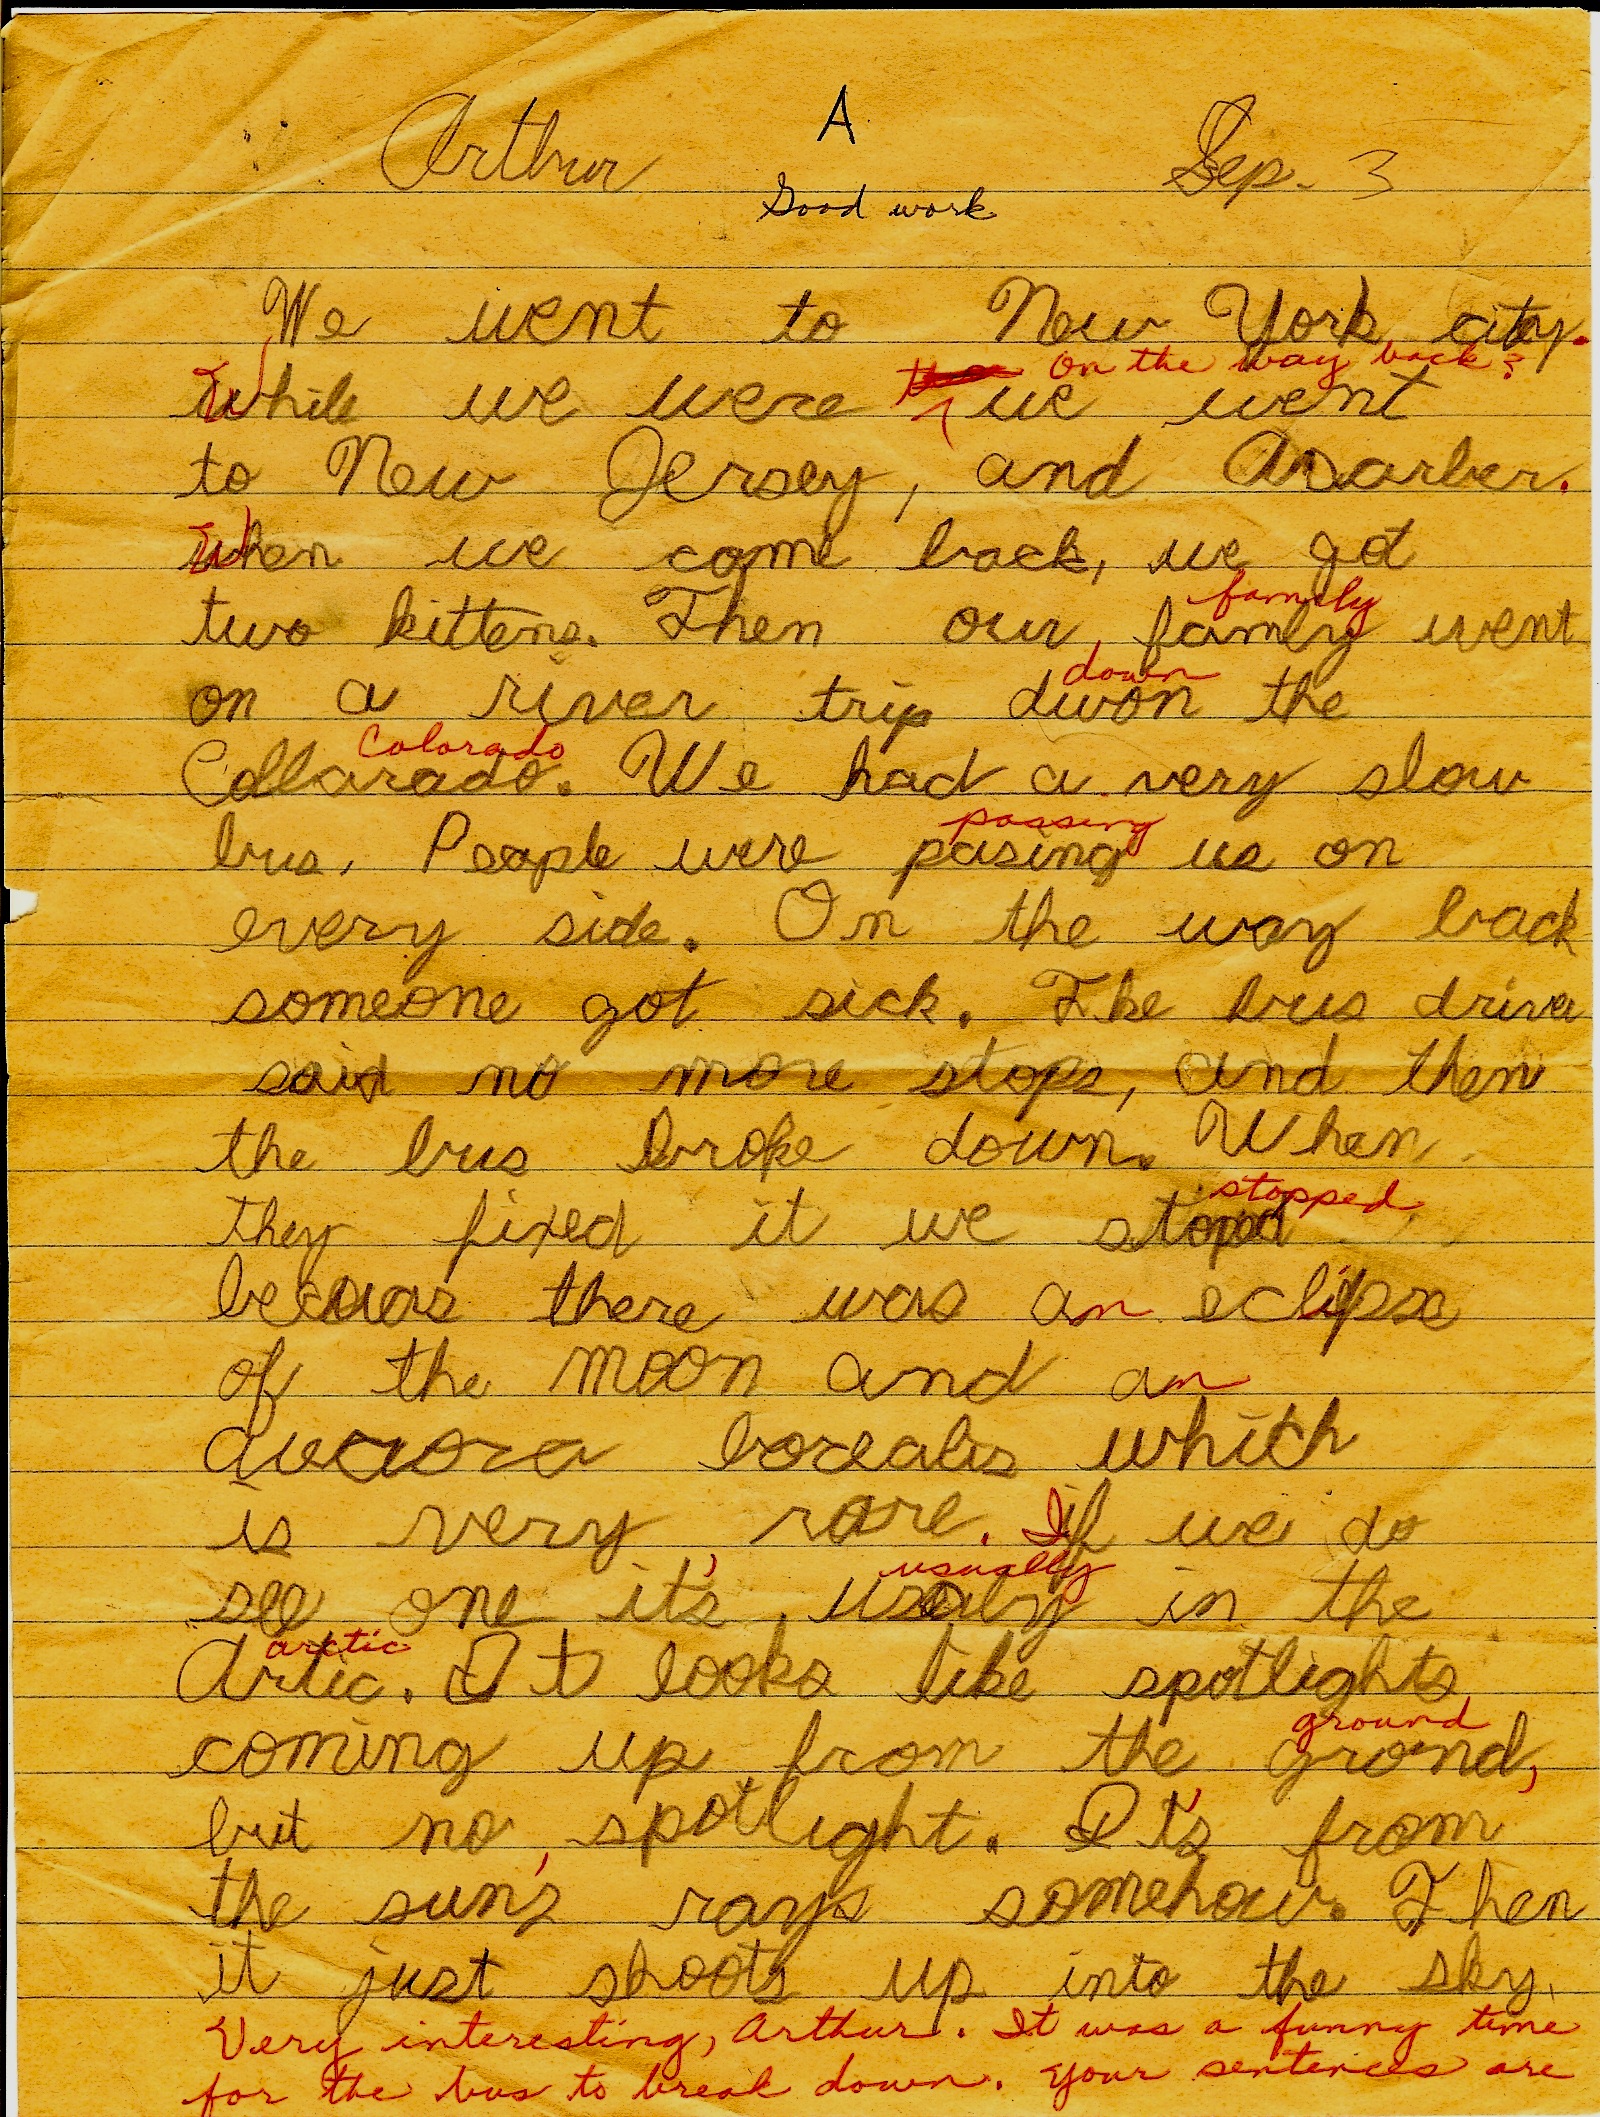 A
Arthur Sep. 3
Good work
We went to New York city.
On the way back?
While we were we went
to New Jersey, and
When we come back, we got
family
two kittens. Then our famly went
down
on a river trip dwon the
Colorado
Collarado. We had a very slow
passing
bus. People were pasing us on
every side. On the way back
someone got sick. The bus driver
said no more stops, and then
the bus broke down. When
stopped
they fixed it we stoped
becuas there was an eclipse
of the moon and an
aurora borealis which
is very rare. If we do
usually
see one it's usualy in the
arctic
Artic. It looks like spotlights
ground
coming up from the grond,
but no spotlight. It's from
the sun's rays somehow. Then
it just shoots up into the sky.
Very interesting, Arthur. It was a funny time
for the bus to break down. Your sentences are